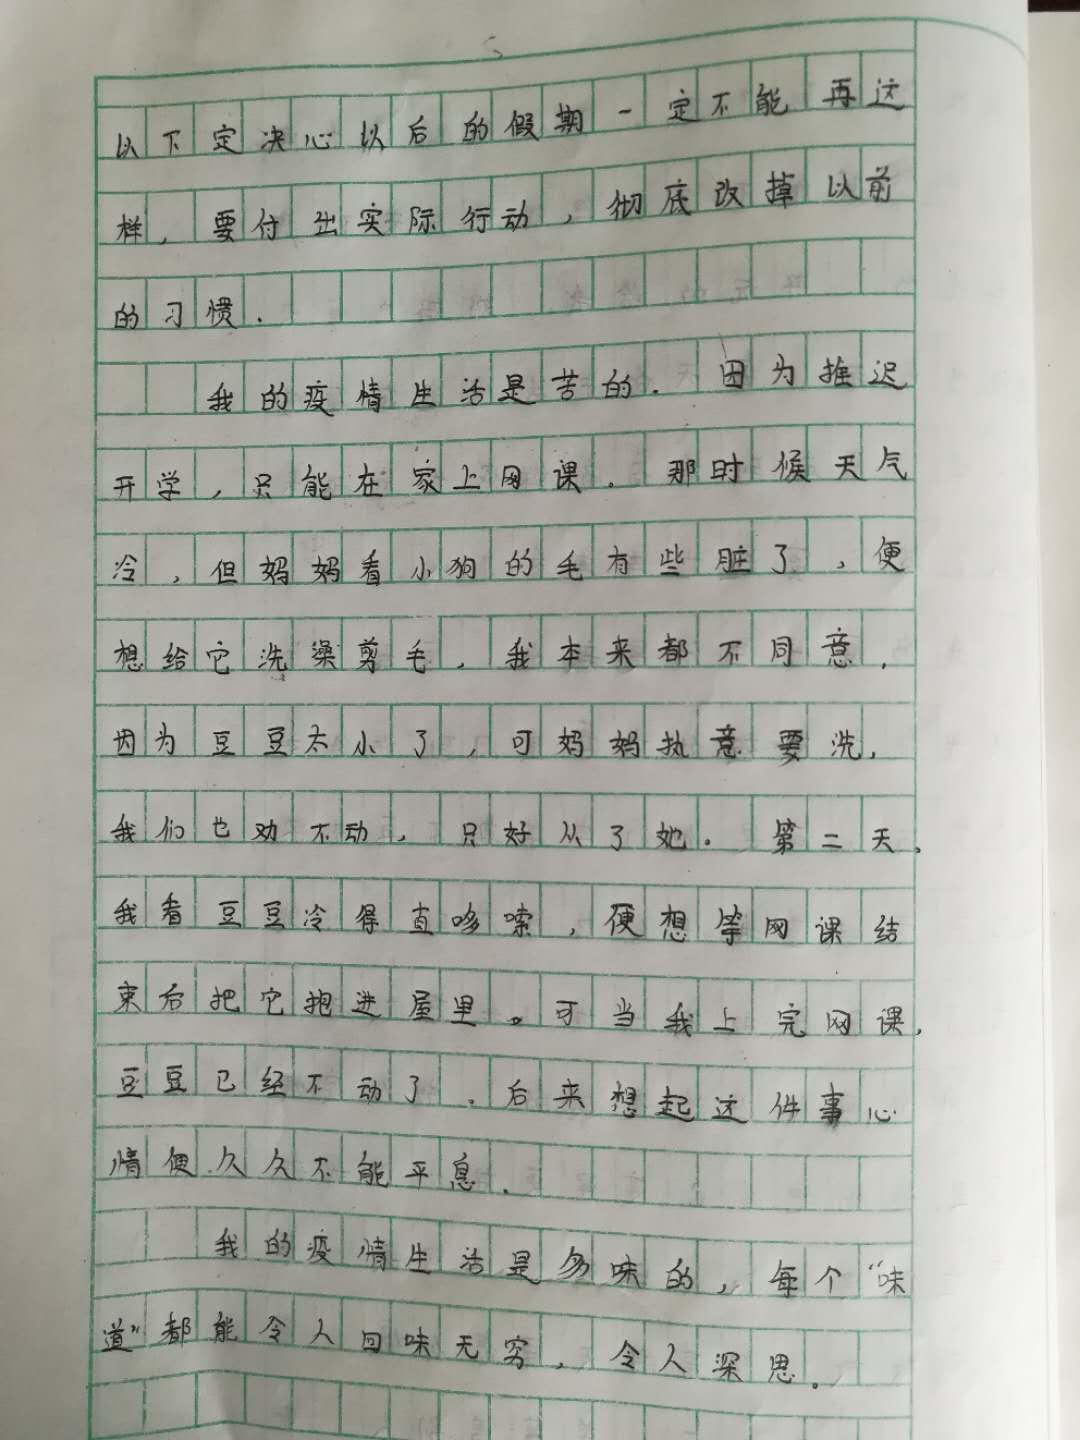 以下定决心以后的假期一定不能再这
样，要付出实际行动，彻底改掉以前
的习惯.
我的疫情生活是苦的.因为推迟
开学，只能在家上网课.那时候天气
冷，但妈妈看小狗的毛有些脏了，便
想给它洗澡剪毛，我本来都不同意，
因为豆豆太小了，可妈妈执意要洗，
我们也劝不动，只好从了她.第二天，
我看豆豆冷得直哆嗦，便想等网课结
束后把它抱进屋里。可当我上完网课，
豆豆已经不动了.后来想起这件事心
情便久久不能平息.
我的疫情生活是多味的，每个“味
道”都能令人回味无穷，令人深思.